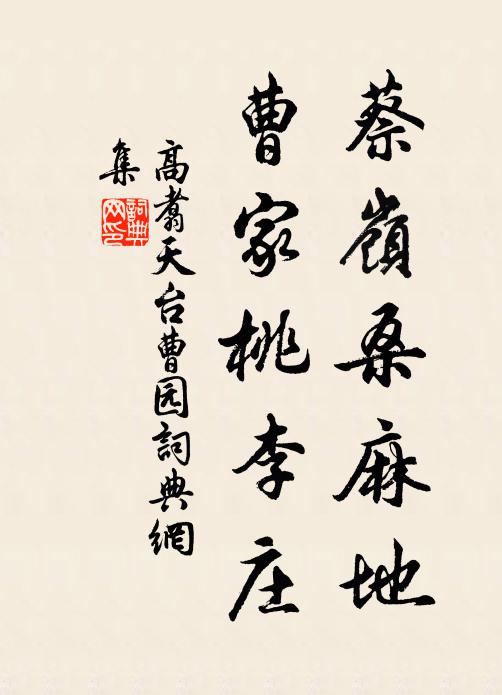 蔡嶺桑麻地
曹家桃李庄
高翥天台曹园詞典網
集
詞典
网印